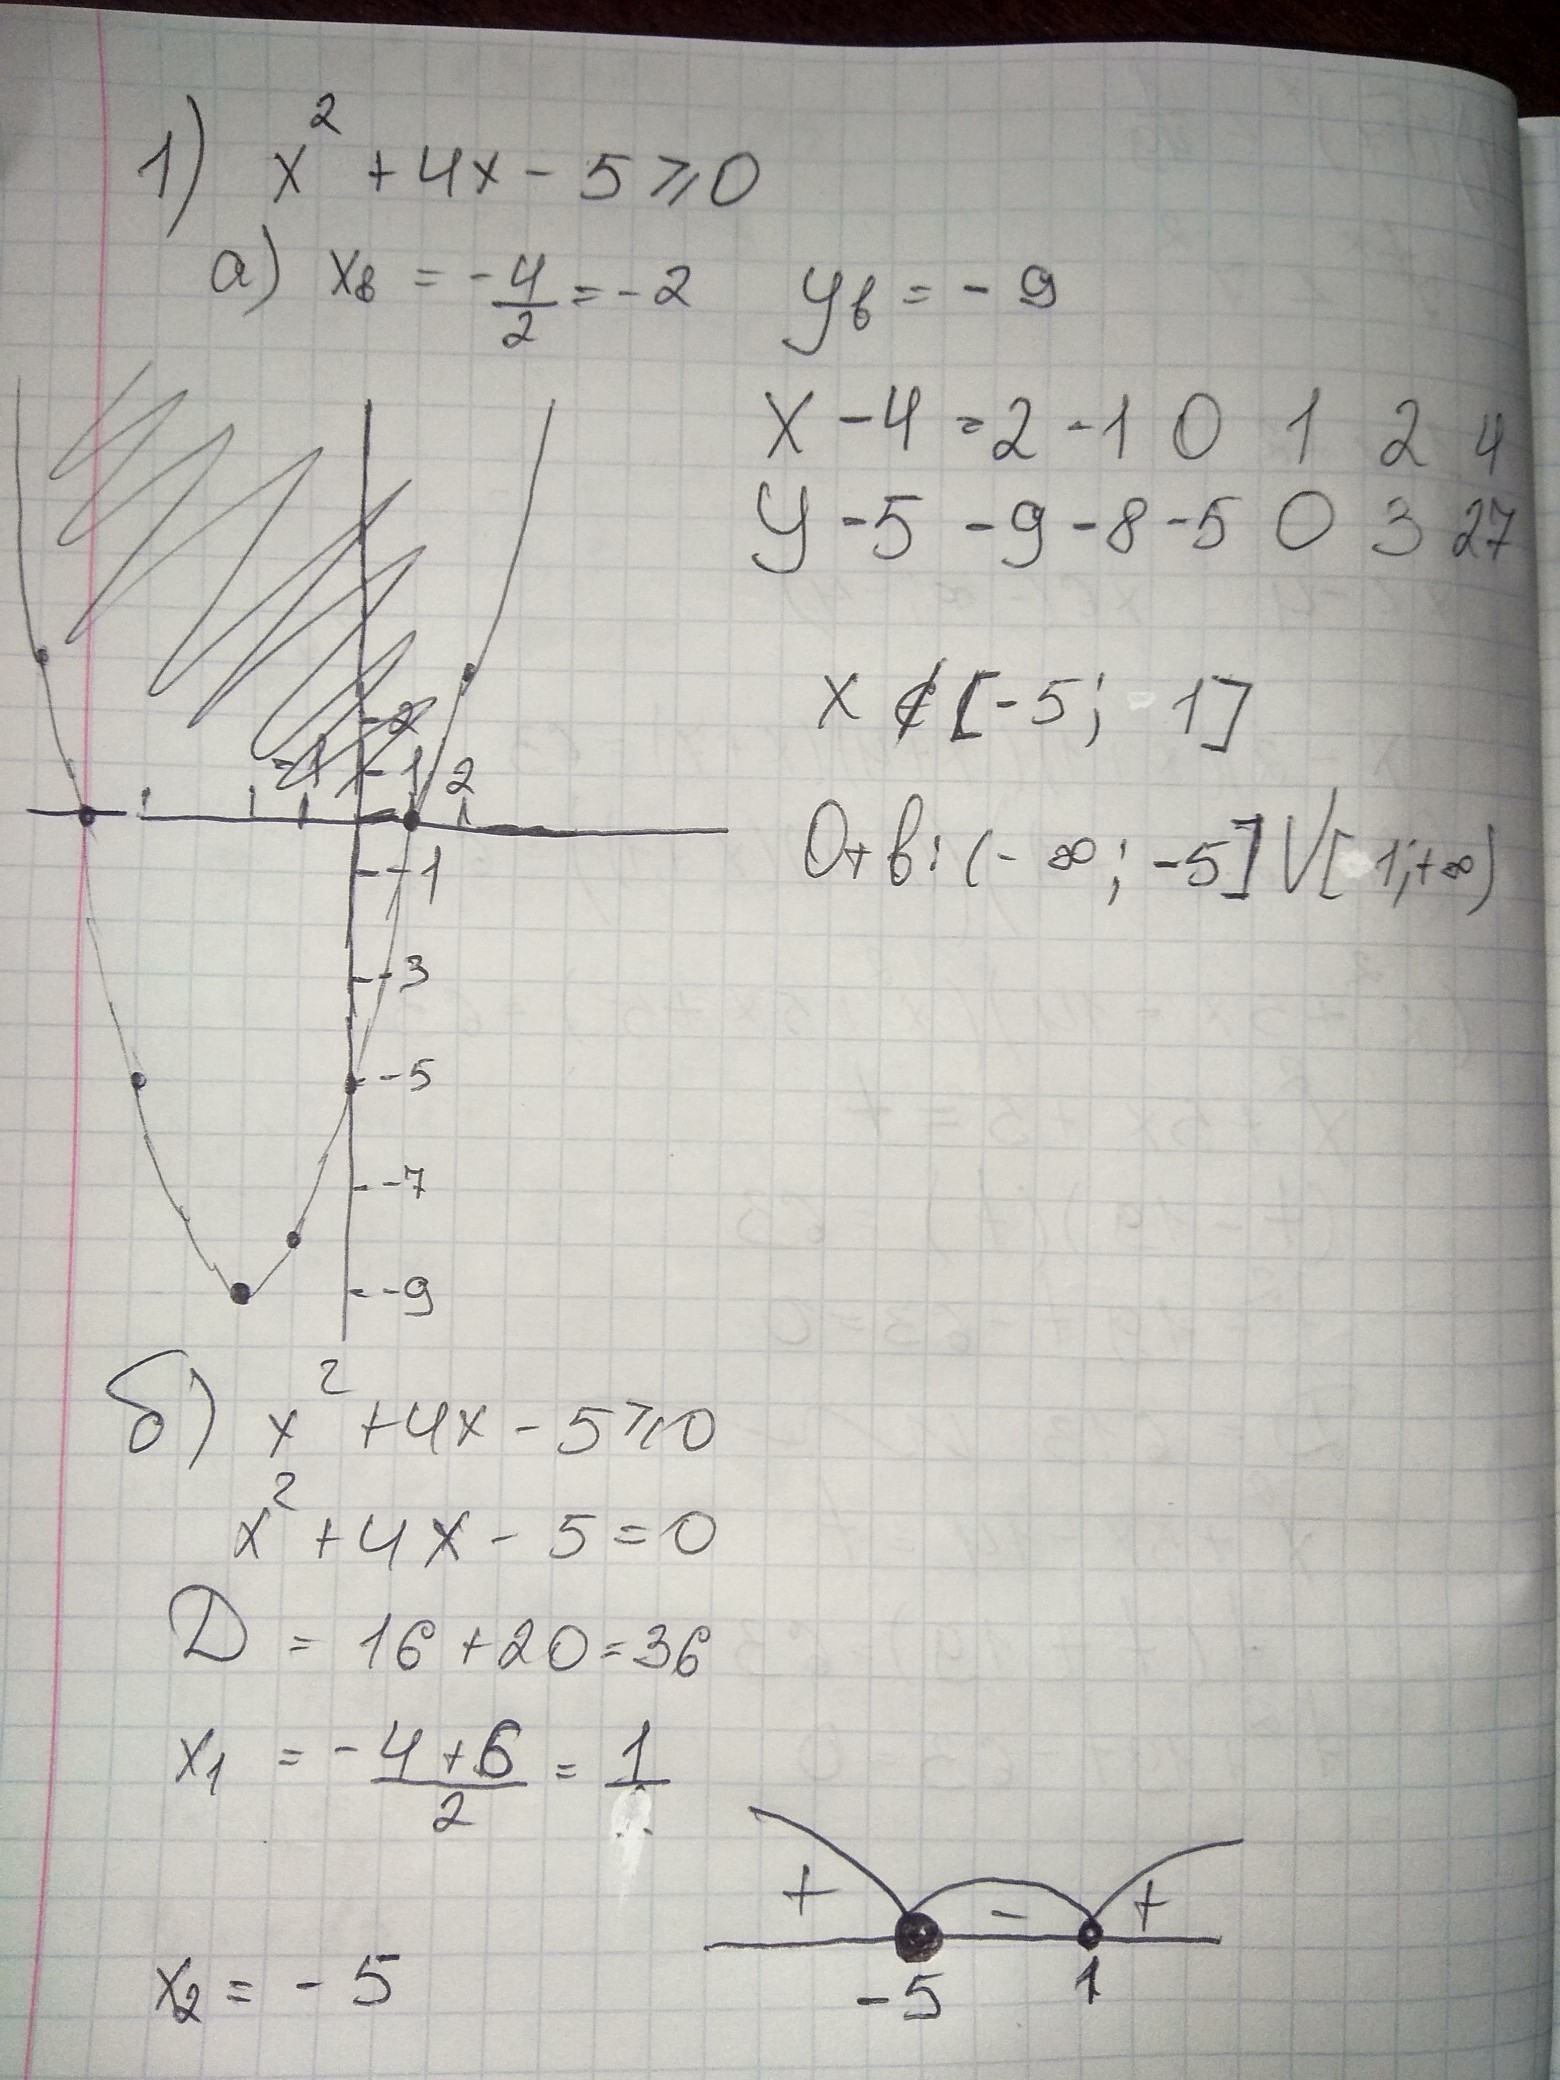 1) x² + 4x - 5 ⩾ 0
а) xв = -4/2 = -2 yв = - 9
x -4 =2 -1 0 1 2 4
y -5 -9 -8 -5 0 3 27
x ∉ [-5; 1]
Отв: (-∞; -5] V [1; +∞)
-2
-1 -1 2
-1
-3
-5
-7
-9
б) x² + 4x - 5 ⩾ 0
x² + 4x - 5 = 0
Д = 16 + 20 = 36
x1 = -4+6/2 = 1
+ - +
x2 = - 5
-5 1